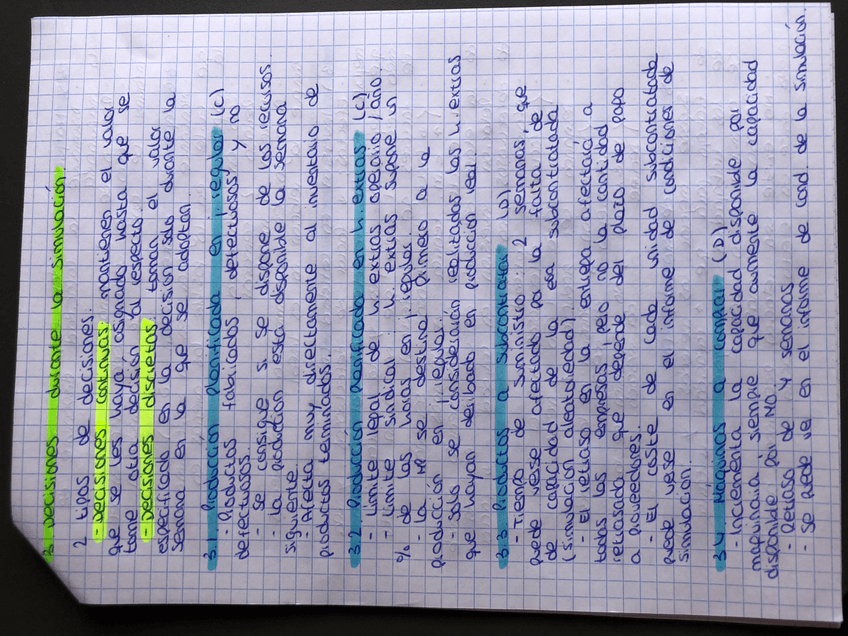 3. Decisiones durante la simulación
2 tipos de decisiones.
- Decisiones continuas: mantienen el valor
que se les haya asignado hasta que se
tome otra decisión al respecto.
- Decisiones discretas: toman el valor
especificado en la decisión solo durante la
semana en la que se adoptan.
3.1. Producción planificada en j. regular (C)
- Productos fabricados, defectuosos y no
defectuosos.
- Se consigue si se dispone de los recursos.
- La producción está disponible la semana
siguiente.
- Afecta muy directamente al inventario de
productos terminados.
3.2. Producción planificada en h. extras (C)
- Límite legal de h. extras operario/año.
- Límite sindical: h. extras supone un
% de las horas en j. regular.
- La MP se destina primero a la
producción en j. regular.
- Solo se consideran realizadas las h. extras
que hayan derivado en producción real.
3.3. Productos a subcontratar (D)
- Tiempo de suministro: 2 semanas, que
puede verse afectado por la falta de
de capacidad de la ea subcontratada
(simulación aleatoriedad).
- El retraso en la entrega afectará a
todas las empresas, pero no la cantidad
retrasada que depende del plazo de pago
a proveedores.
- El coste de cada unidad subcontratada
puede verse en el informe de condiciones de
simulación.
3.4. Máquinas a comprar (D)
- Incrementa la capacidad disponible por
maquinaria siempre que aumente la capacidad
disponible por MO.
- Retraso de 4 semanas
- Se puede ver en el informe de cond de la simulación.